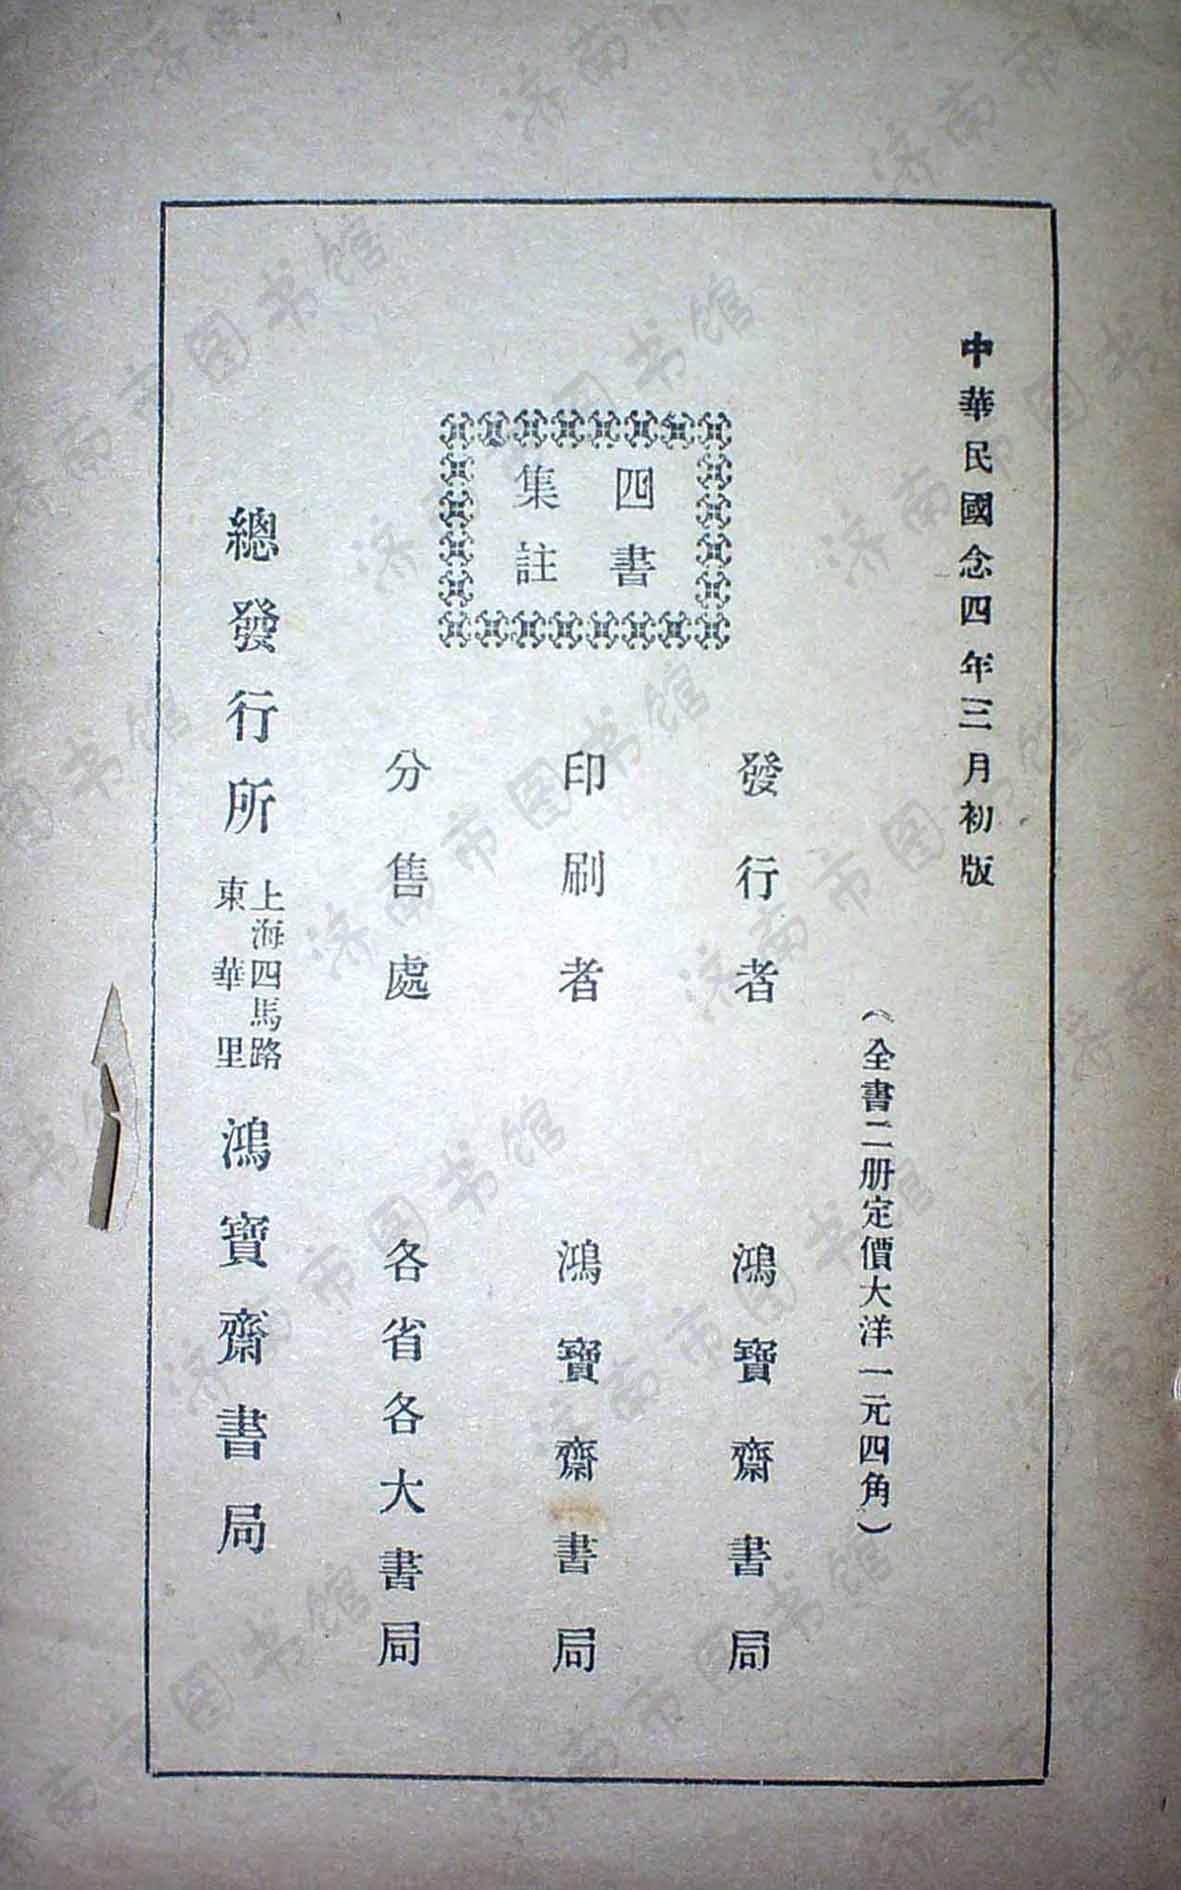 中華民國念四年三月初版
（全書二册定價大洋一元四角）
四書
集註
發行者　鴻寶齋書局
印刷者　鴻寶齋書局
分售處　各省各大書局
總發行所
上海四馬路
東華里
鴻寶齋書局
济南市图书馆